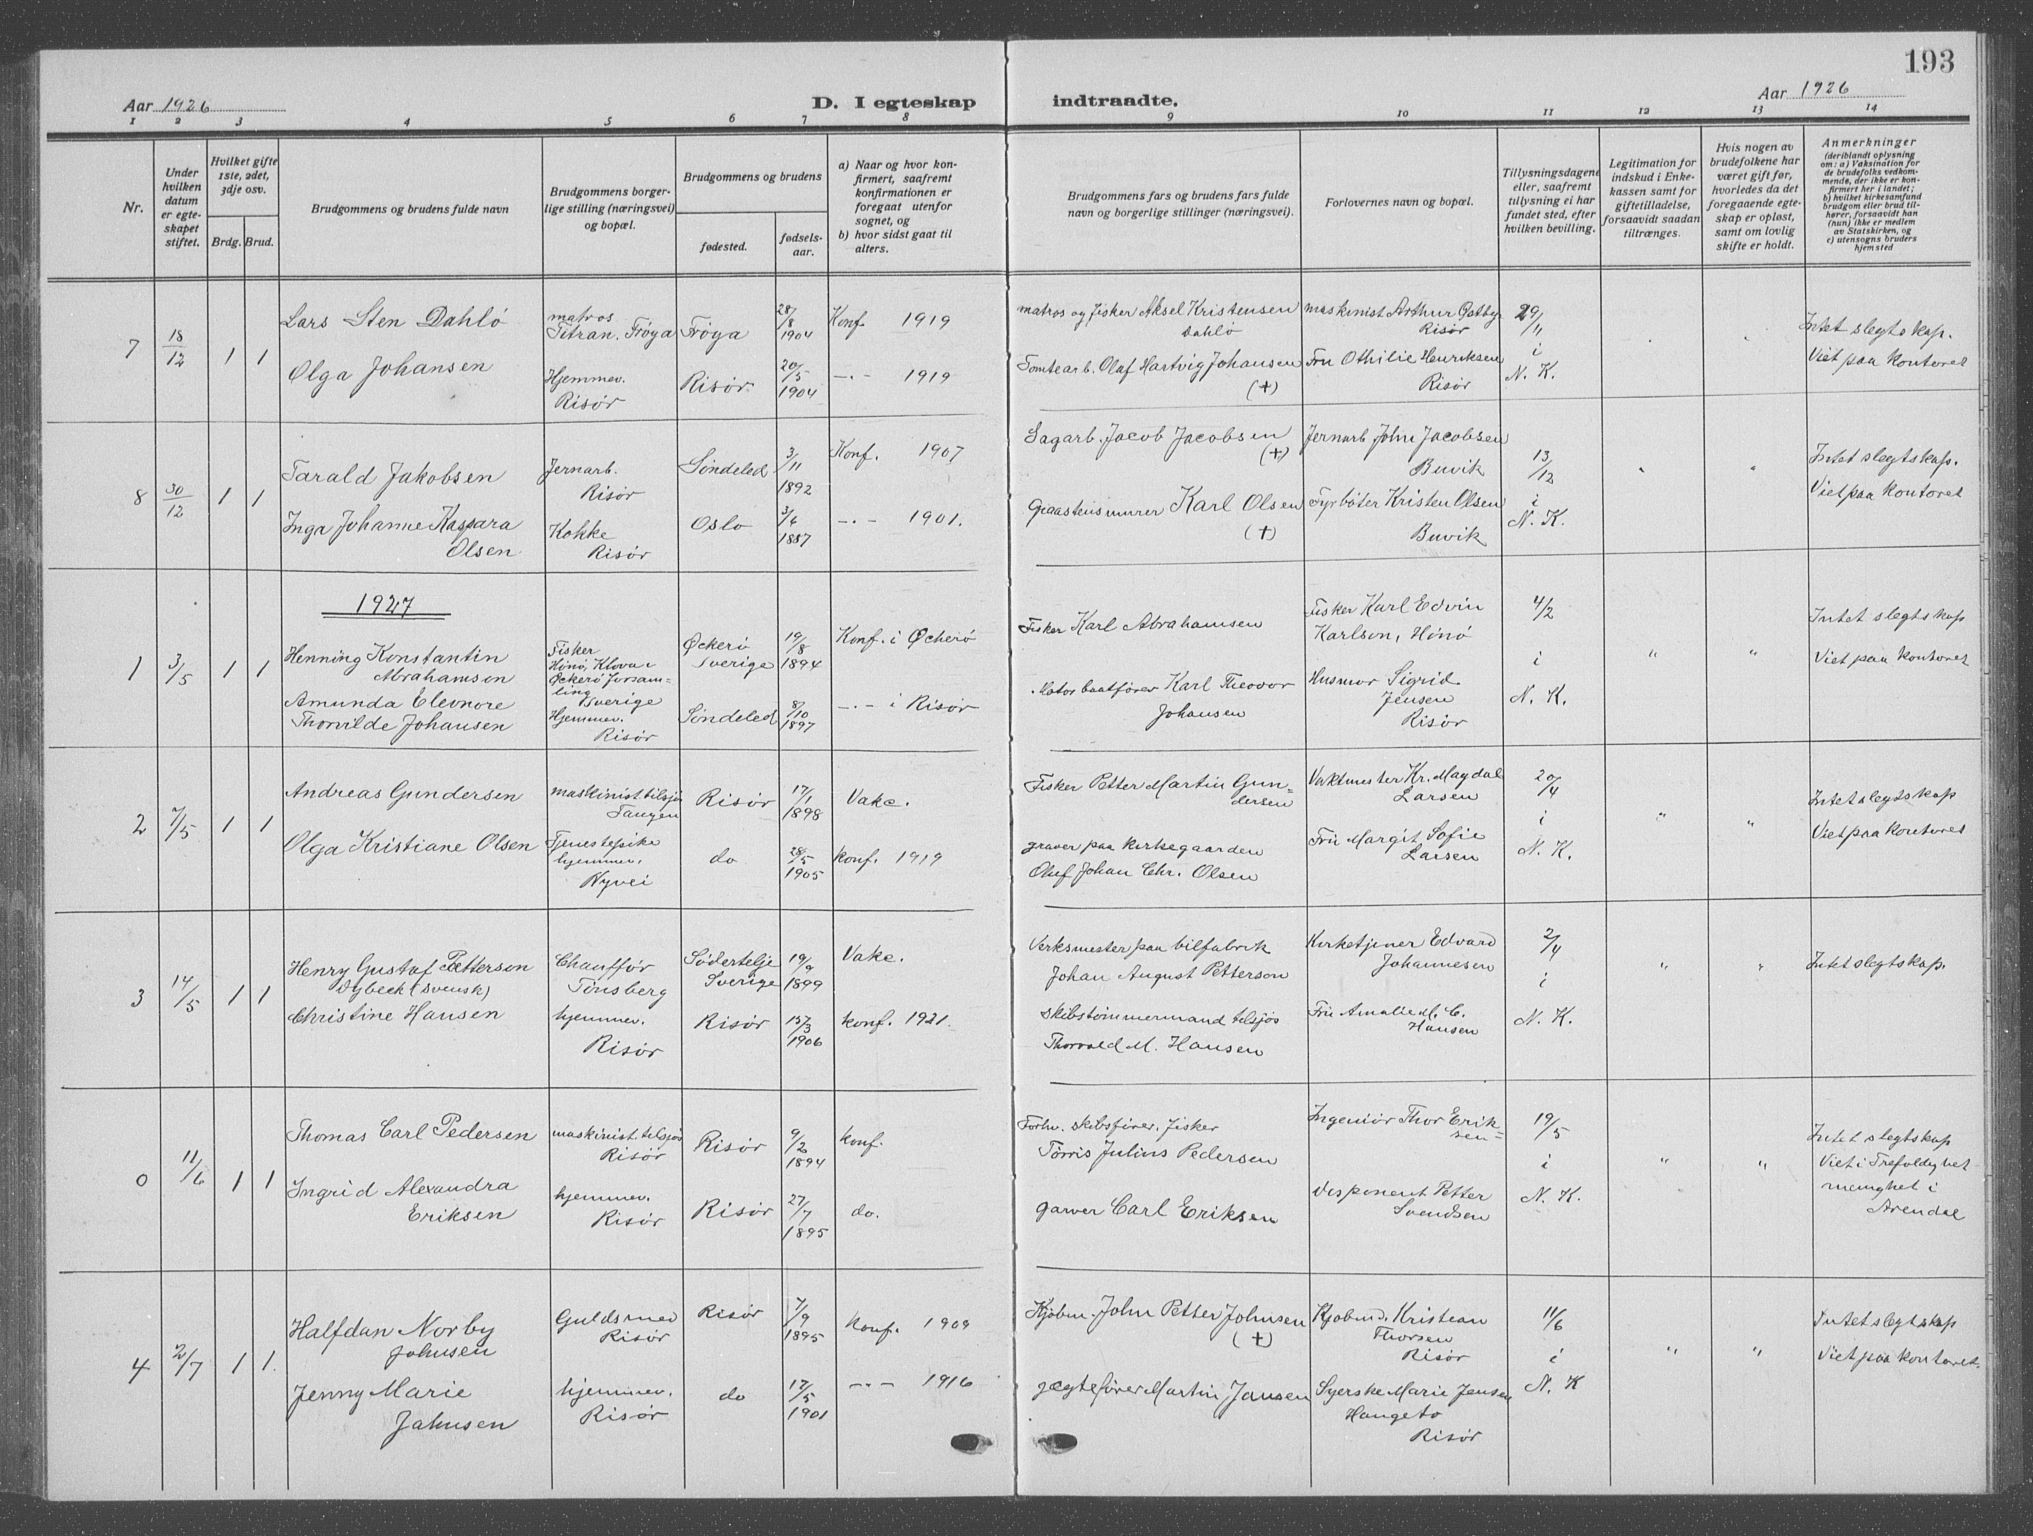 193
Aar 1926
D. I egteskap indtraadte.
Aar 1926
1 2 3 4 5 6 7 8 9 10 11 12 13 14
Nr.
Under hvilken datum er egteskapet stiftet.
Hvilket gifte 1ste, 2det, 3dje osv.
Brdg. Brud.
Brudgommens og brudens fulde navn
Brudgommens borgerlige stilling (næringsvei) og bopæl.
Brudgommens og brudens
fødested.
fødselsaar.
a) Naar og hvor konfirmert, saafremt konfirmationen er foregaat utenfor sognet, og
b) hvor sidst gaat til alters.
Brudgommens fars og brudens fars fulde navn og borgerlige stillinger (næringsvei).
Forlovernes navn og bopæl.
Tillysningsdagene eller, saafremt tillysning ei har fundet sted, efter hvilken bevilling.
Legitimation for indskud i Enkekassen samt for giftetilladelse, forsaavidt saadan tiltrænges.
Hvis nogen av brudefolkene har været gift før, hvorledes da det foregaaende egteskap er opløst, samt om lovlig skifte er holdt.
Anmerkninger
(deriblandt oplysning om: a) Vaksination for de brudefolks vedkommende, der ikke er konfirmert her i landet; b) hvilket kirkesamfund brudgom eller brud tilhører, forsaavidt han (hun) ikke er medlem av Statskirken, og c) utensogns bruders hjemsted
7 18/12 1 1
Lars Sten Dahlø
matros Titran, Frøya Frøya 28/8 1904 Konf. 1919
matros og fisker Aksel Kristensen Dahlø
maskinist Arthur Risør
29/11 i N. K.
Intet slegtskap.
Viet paa kontoret
Olga Johansen
Hjemmev. Risør Risør 20/5 1904 —"— 1919
Tomtearb. Olaf Hartvig Johansen (+)
Fru Othilie Henriksen Risør
8 30/12 1 1
Tarald Jakobsen
Jernarb. Risør Søndeled 3/11 1892 Konf. 1907
Sagarb. Jacob Jacobsen (+)
Jernarb John Jacobsen Buvik
13/12 i N. K. " "
Intet slegtskap.
Viet paa kontoret
Inga Johanne Kaspara Olsen
Kokke Risør Oslo 3/6 1887 —"— 1901.
Graastensmurer Karl Olsen (+)
Fyrbøter Kristen Olsen Buvik
1927
1 3/5 1 1
Henning Konstantin Abrahamson
Fisker Hønø, Klova i Øckerø forsamling Sverige
Øckerø Sverige 19/8 1894 Konf. i Øckerø
Fisker Karl Abrahamsen
Fisker Karl Edvin Karlson, Hønø
4/2 i N. K. " "
Intet slegtskap
Viet paa kontoret
Amunda Eleonore Thorvilde Johansen
Hjemmev. Risør Søndeled 8/10 1897 —"— i Risør
Motorbaatfører Karl Theodor Johansen
Husmor Sigrid Jensen Risør
2 7/5 1 1
Andreas Gundersen
maskinist tilsjøs Tangen Risør 17/1 1898 Vake.
Fisker Petter Martin Gundersen
Vaktmester Kr. Magdal Larsen
20/4 i N. K. " "
Intet slegtskap
Viet paa kontoret
Olga Kristiane Olsen
Tjenestepike hjemmev. Nyvei do 28/5 1905 konf. 1919
graver paa kirkegaarden Oluf Johan Chr. Olsen
Fru Margit Sofie Larsen
3 14/5 1 1
Henry Gustaf Petterson Dybeck (svensk)
Chauffør Tønsberg Södertelje Sverige 19/9 1899 Vake.
Verksmester paa bilfabrik Johan August Petterson
Kirketjener Edvard Johannesen
2/4 i N. K. " "
Intet slegtskap.
Christine Hansen
hjemmev. Risør Risør 1906 konf. 1921.
Skibstømmermand tilsjøs Thorvald M. Hansen
Fru Amalie M. C. Hansen
0 11/6 1 1
Thomas Carl Pedersen
maskinist tilsjøs Risør Risør 9/2 1894 konf.
Forhv. skibsfører, fisker Tørris Julius Pedersen
Ingeniør Thor Eriksen
19/5 i N. K. " "
Intet slegtskap
Viet i Trefoldighet menighet i Arendal
Ingrid Alexandra Eriksen
hjemmev. Risør Risør 27/7 1895 do.
garver Carl Eriksen
Disponent Petter Svendsen
4 2/7 1 1.
Halfdan Norby Johnsen
Guldsmed Risør Risør 7/9 1895 Konf. 1909
Kjøbm. John Petter Johnsen (+)
Kjøbmd. Kristian Thorsen Risør
11/6 i N. K " "
Intet slegtskap
Viet paa kontoret.
Jenny Marie Jahnsen
hjemmev. Risør do 17/5 1901 —"— 1916
Jægtefører Martin Jansen
Syerske Marie Jensen Hangeto Risør